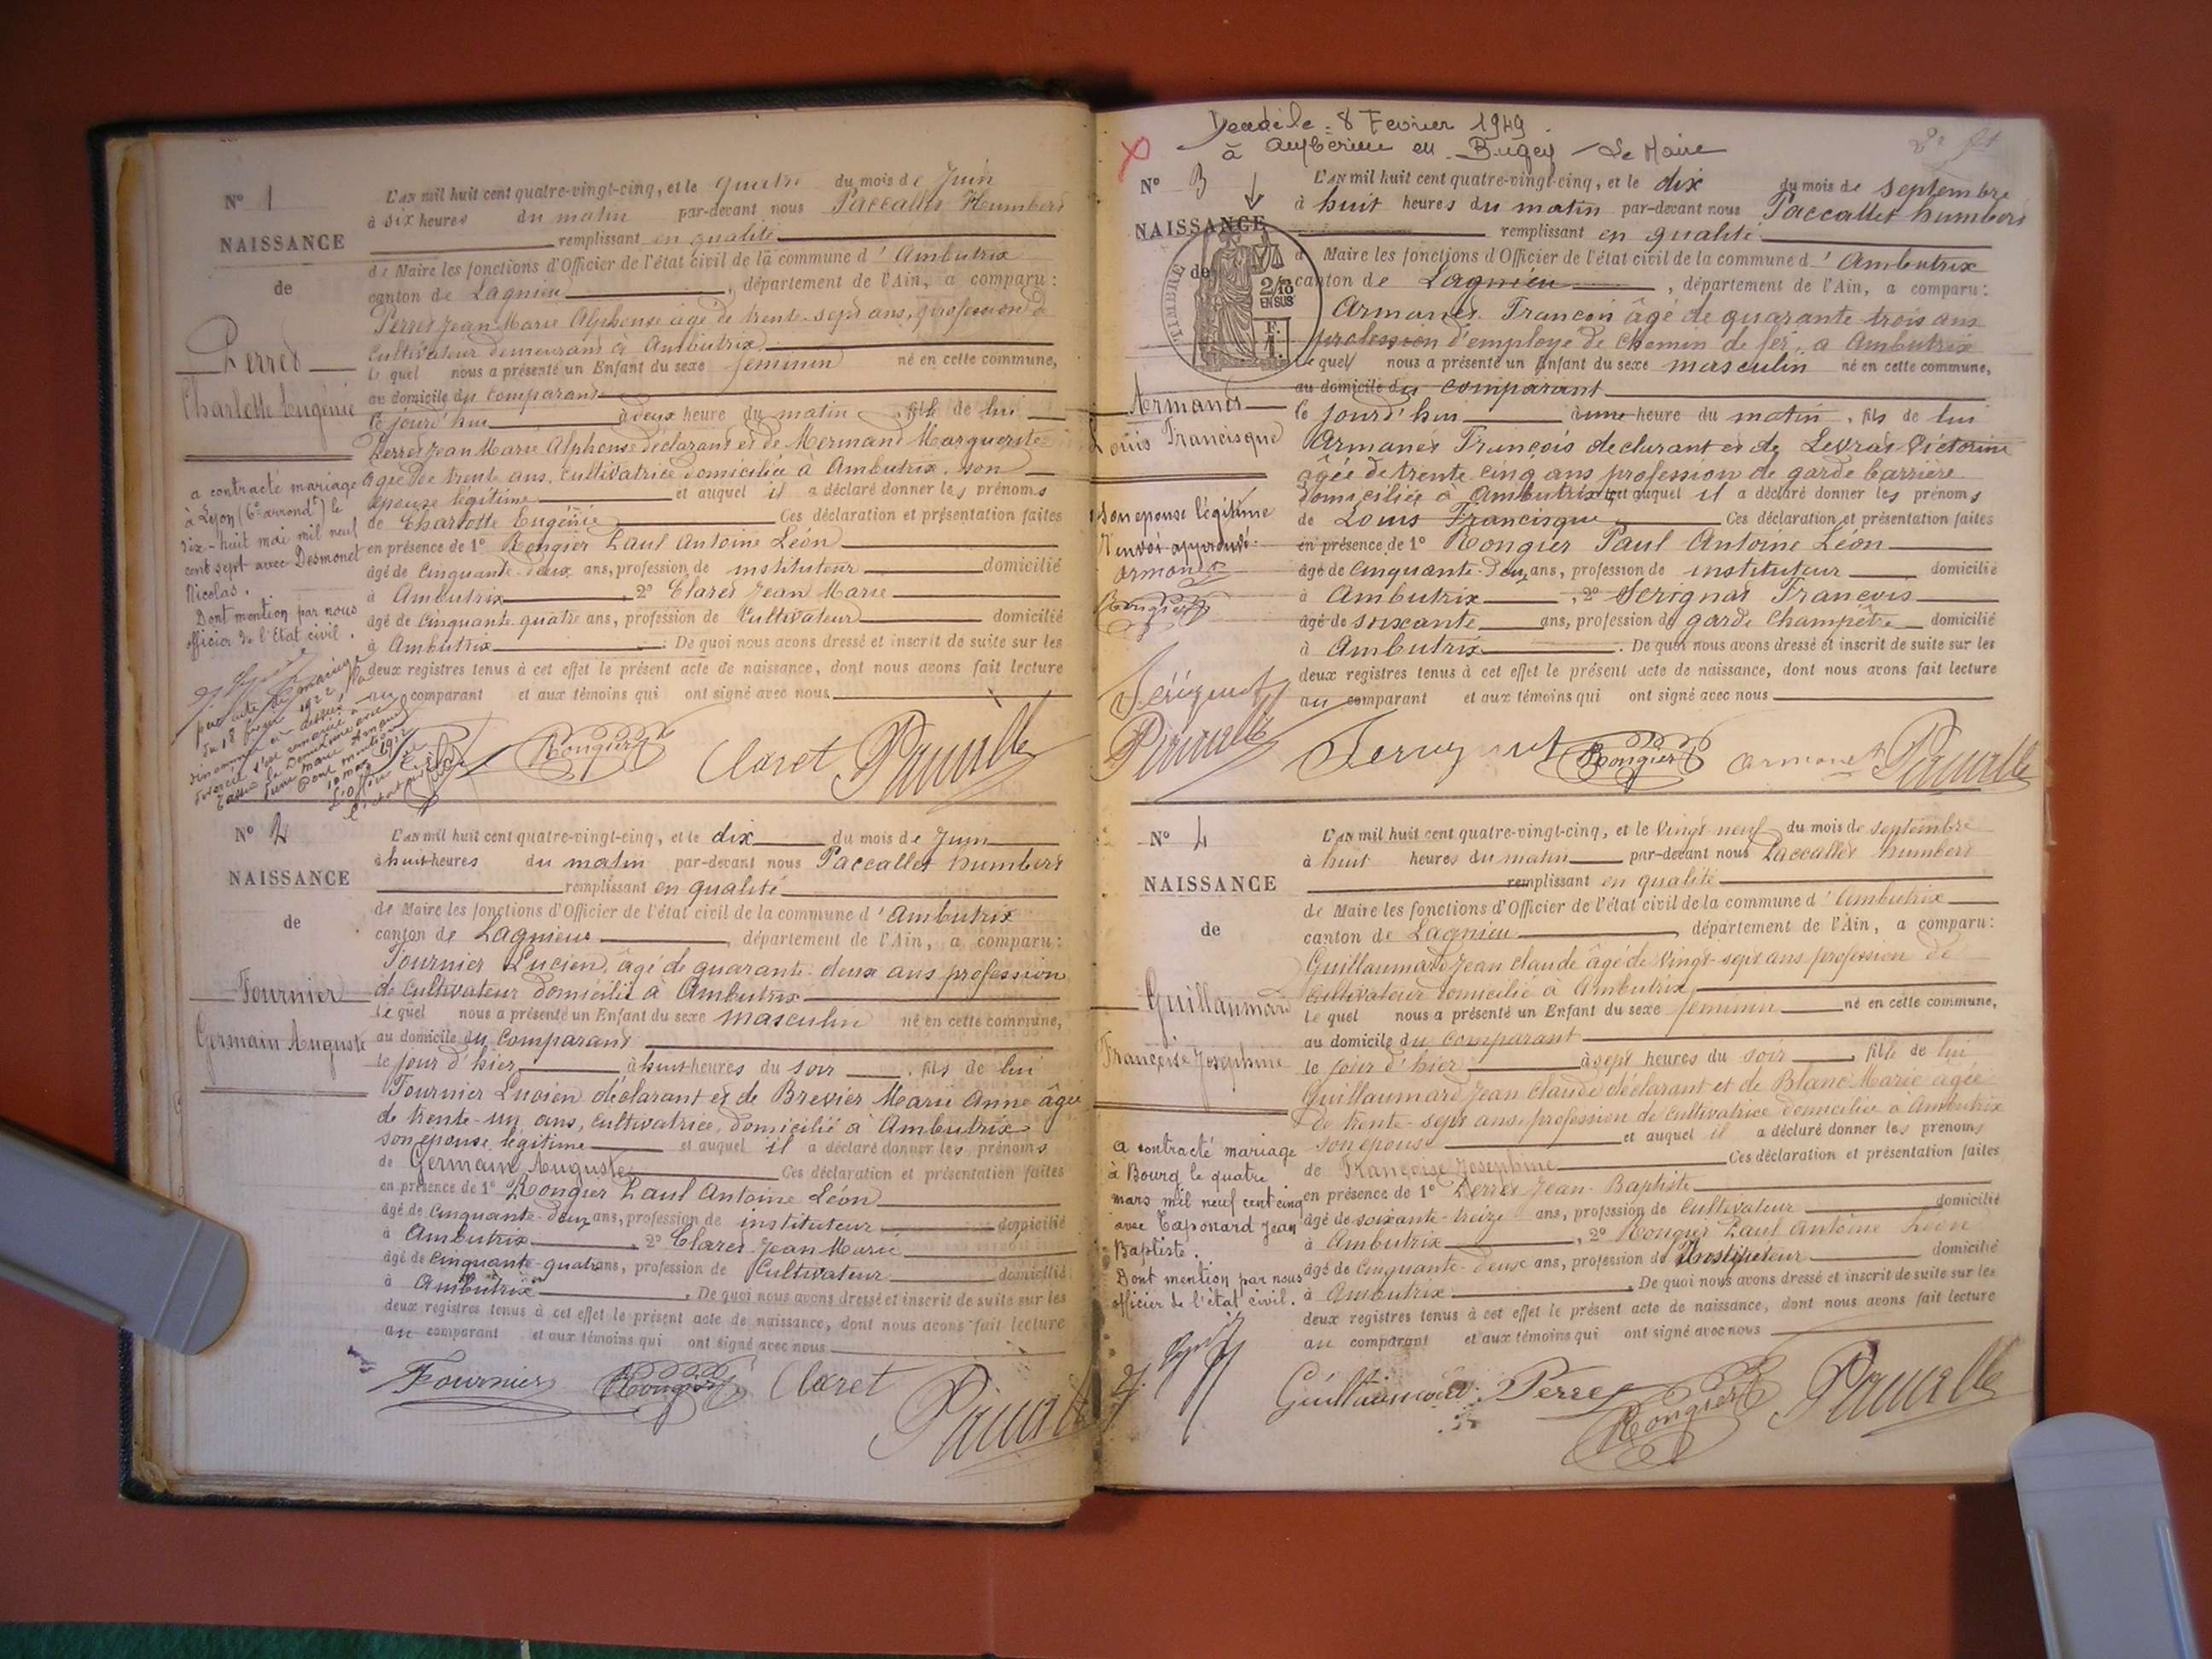 N° 1
NAISSANCE
de
Perret
Charlotte Eugénie
a contracté mariage
à Lyon (6e arrondt) le
dix-huit mai mil neuf
cent sept avec Desmonet
Nicolas.
Dont mention par nous
officier de l'Etat civil.
L'an mil huit cent quatre-vingt-cinq, et le quatre du mois de Juin
à six heures du matin par-devant nous Paccallet Humbert
remplissant en qualité
de Maire les fonctions d'Officier de l'état civil de la commune d'Ambutrix
canton de Lagnieu, département de l'Ain, a comparu:
Perret Jean Marie Alphonse âgé de trente-sept ans, profession de
Cultivateur demeurant à Ambutrix
lequel nous a présenté un Enfant du sexe féminin né en cette commune,
au domicile du Comparant
le jourd'hui à deux heure du matin, fille de lui
Perret Jean Marie Alphonse déclarant et de Mermand Marguerite
âgée de trente ans, cultivatrice domiciliée à Ambutrix, son
épouse légitime et auquel il a déclaré donner les prénoms
de Charlotte Eugénie Ces déclaration et présentation faites
en présence de 1° Rongier Paul Antoine Léon
âgé de cinquante-deux ans, profession de instituteur domicilié
à Ambutrix, 2° Claret Jean Marie
âgé de cinquante quatre ans, profession de Cultivateur domicilié
à Ambutrix: De quoi nous avons dressé et inscrit de suite sur les
deux registres tenus à cet effet le présent acte de naissance, dont nous avons fait lecture
au comparant et aux témoins qui ont signé avec nous
Rongier Claret
N° 2
NAISSANCE
de
Fournier
Germain Auguste
L'an mil huit cent quatre-vingt-cinq, et le dix du mois de Juin
à huit heures du matin par-devant nous Paccallet humbert
remplissant en qualité
de Maire les fonctions d'Officier de l'état civil de la commune d'Ambutrix
canton de Lagnieu, département de l'Ain, a comparu:
Fournier Lucien, âgé de quarante-deux ans profession
de Cultivateur domicilié à Ambutrix
lequel nous a présenté un Enfant du sexe masculin né en cette commune,
au domicile du Comparant
le jour d'hier à huit heures du soir, fils de lui
Fournier Lucien déclarant et de Brevier Marie Anne âgée
de trente-un ans, cultivatrice, domicilié à Ambutrix
son épouse légitime et auquel il a déclaré donner les prénoms
de Germain Auguste Ces déclaration et présentation faites
en présence de 1° Rongier Paul Antoine Léon
âgé de cinquante-deux ans, profession de instituteur domicilié
à Ambutrix, 2° Claret Jean Marie
âgé de cinquante-quatre ans, profession de Cultivateur domicilié
à Ambutrix. De quoi nous avons dressé et inscrit de suite sur les
deux registres tenus à cet effet le présent acte de naissance, dont nous avons fait lecture
au comparant et aux témoins qui ont signé avec nous
Fournier Rongier Claret
8 Fevrier 1949
à Ambérieu en Bugey Le Maire
N° 3
NAISSANCE
de
TIMBRE
2/10
EN SUS
Armanet
Louis Francisque
Son épouse légitime
Renvoi approuvé.
Armanet
Rongier
L'an mil huit cent quatre-vingt-cinq, et le dix du mois de septembre
à huit heures du matin par-devant nous Paccallet humbert
remplissant en qualité
d Maire les fonctions d'Officier de l'état civil de la commune d'Ambutrix
canton de Lagnieu, département de l'Ain, a comparu:
Armanet François âgé de quarante trois ans
profession d'employé de chemin de fer, a Ambutrix
lequel nous a présenté un Enfant du sexe masculin né en cette commune,
au domicile du comparant
le jourd'hui à une heure du matin, fils de lui
Armanet François declarant et de Levrat Victorine
âgée de trente cinq ans profession de garde barrière
domiciliée à Ambutrix et auquel il a déclaré donner les prénoms
de Louis Francisque Ces déclaration et présentation faites
en présence de 1° Rongier Paul Antoine Léon
âgé de cinquante-deux ans, profession de instituteur domicilié
à Ambutrix, 2° Serignat François
âgé de soixante ans, profession de garde Champêtre domicilié
à Ambutrix: De quoi nous avons dressé et inscrit de suite sur les
deux registres tenus à cet effet le présent acte de naissance, dont nous avons fait lecture
au comparant et aux témoins qui ont signé avec nous
Rongier Armanet
N° 4
NAISSANCE
de
Guillaumard
Françoise Josephine
a contracté mariage
à Bourg le quatre
mars mil neuf cent cinq
avec Taponard Jean
Baptiste.
Dont mention par nous
officier de l'état civil.
L'an mil huit cent quatre-vingt-cinq, et le vingt-neuf du mois de septembre
à huit heures du matin par-devant nous Paccallet humbert
remplissant en qualité
de Maire les fonctions d'Officier de l'état civil de la commune d'Ambutrix
canton de Lagnieu, département de l'Ain, a comparu:
Guillaumard Jean claude âgé de vingt-sept ans profession de
cultivateur domicilié à Ambutrix
lequel nous a présenté un Enfant du sexe féminin né en cette commune,
au domicile du Comparant
le jour d'hier à sept heures du soir, fille de lui
Guillaumard Jean Claude déclarant et de Blanc Marie agée
de trente-sept ans, profession de cultivatrice domiciliée à Ambutrix
son épouse et auquel il a déclaré donner les prénoms
de Françoise Josephine Ces déclaration et présentation faites
en présence de 1° Perret Jean-Baptiste
âgé de soixante-treize ans, profession de Cultivateur domicilié
à Ambutrix, 2° Rongier Paul Antoine Léon
âgé de cinquante-deux ans, profession de Instituteur domicilié
à Ambutrix. De quoi nous avons dressé et inscrit de suite sur les
deux registres tenus à cet effet le présent acte de naissance, dont nous avons fait lecture
au comparant et aux témoins qui ont signé avec nous
Guillaumard Perret Rongier